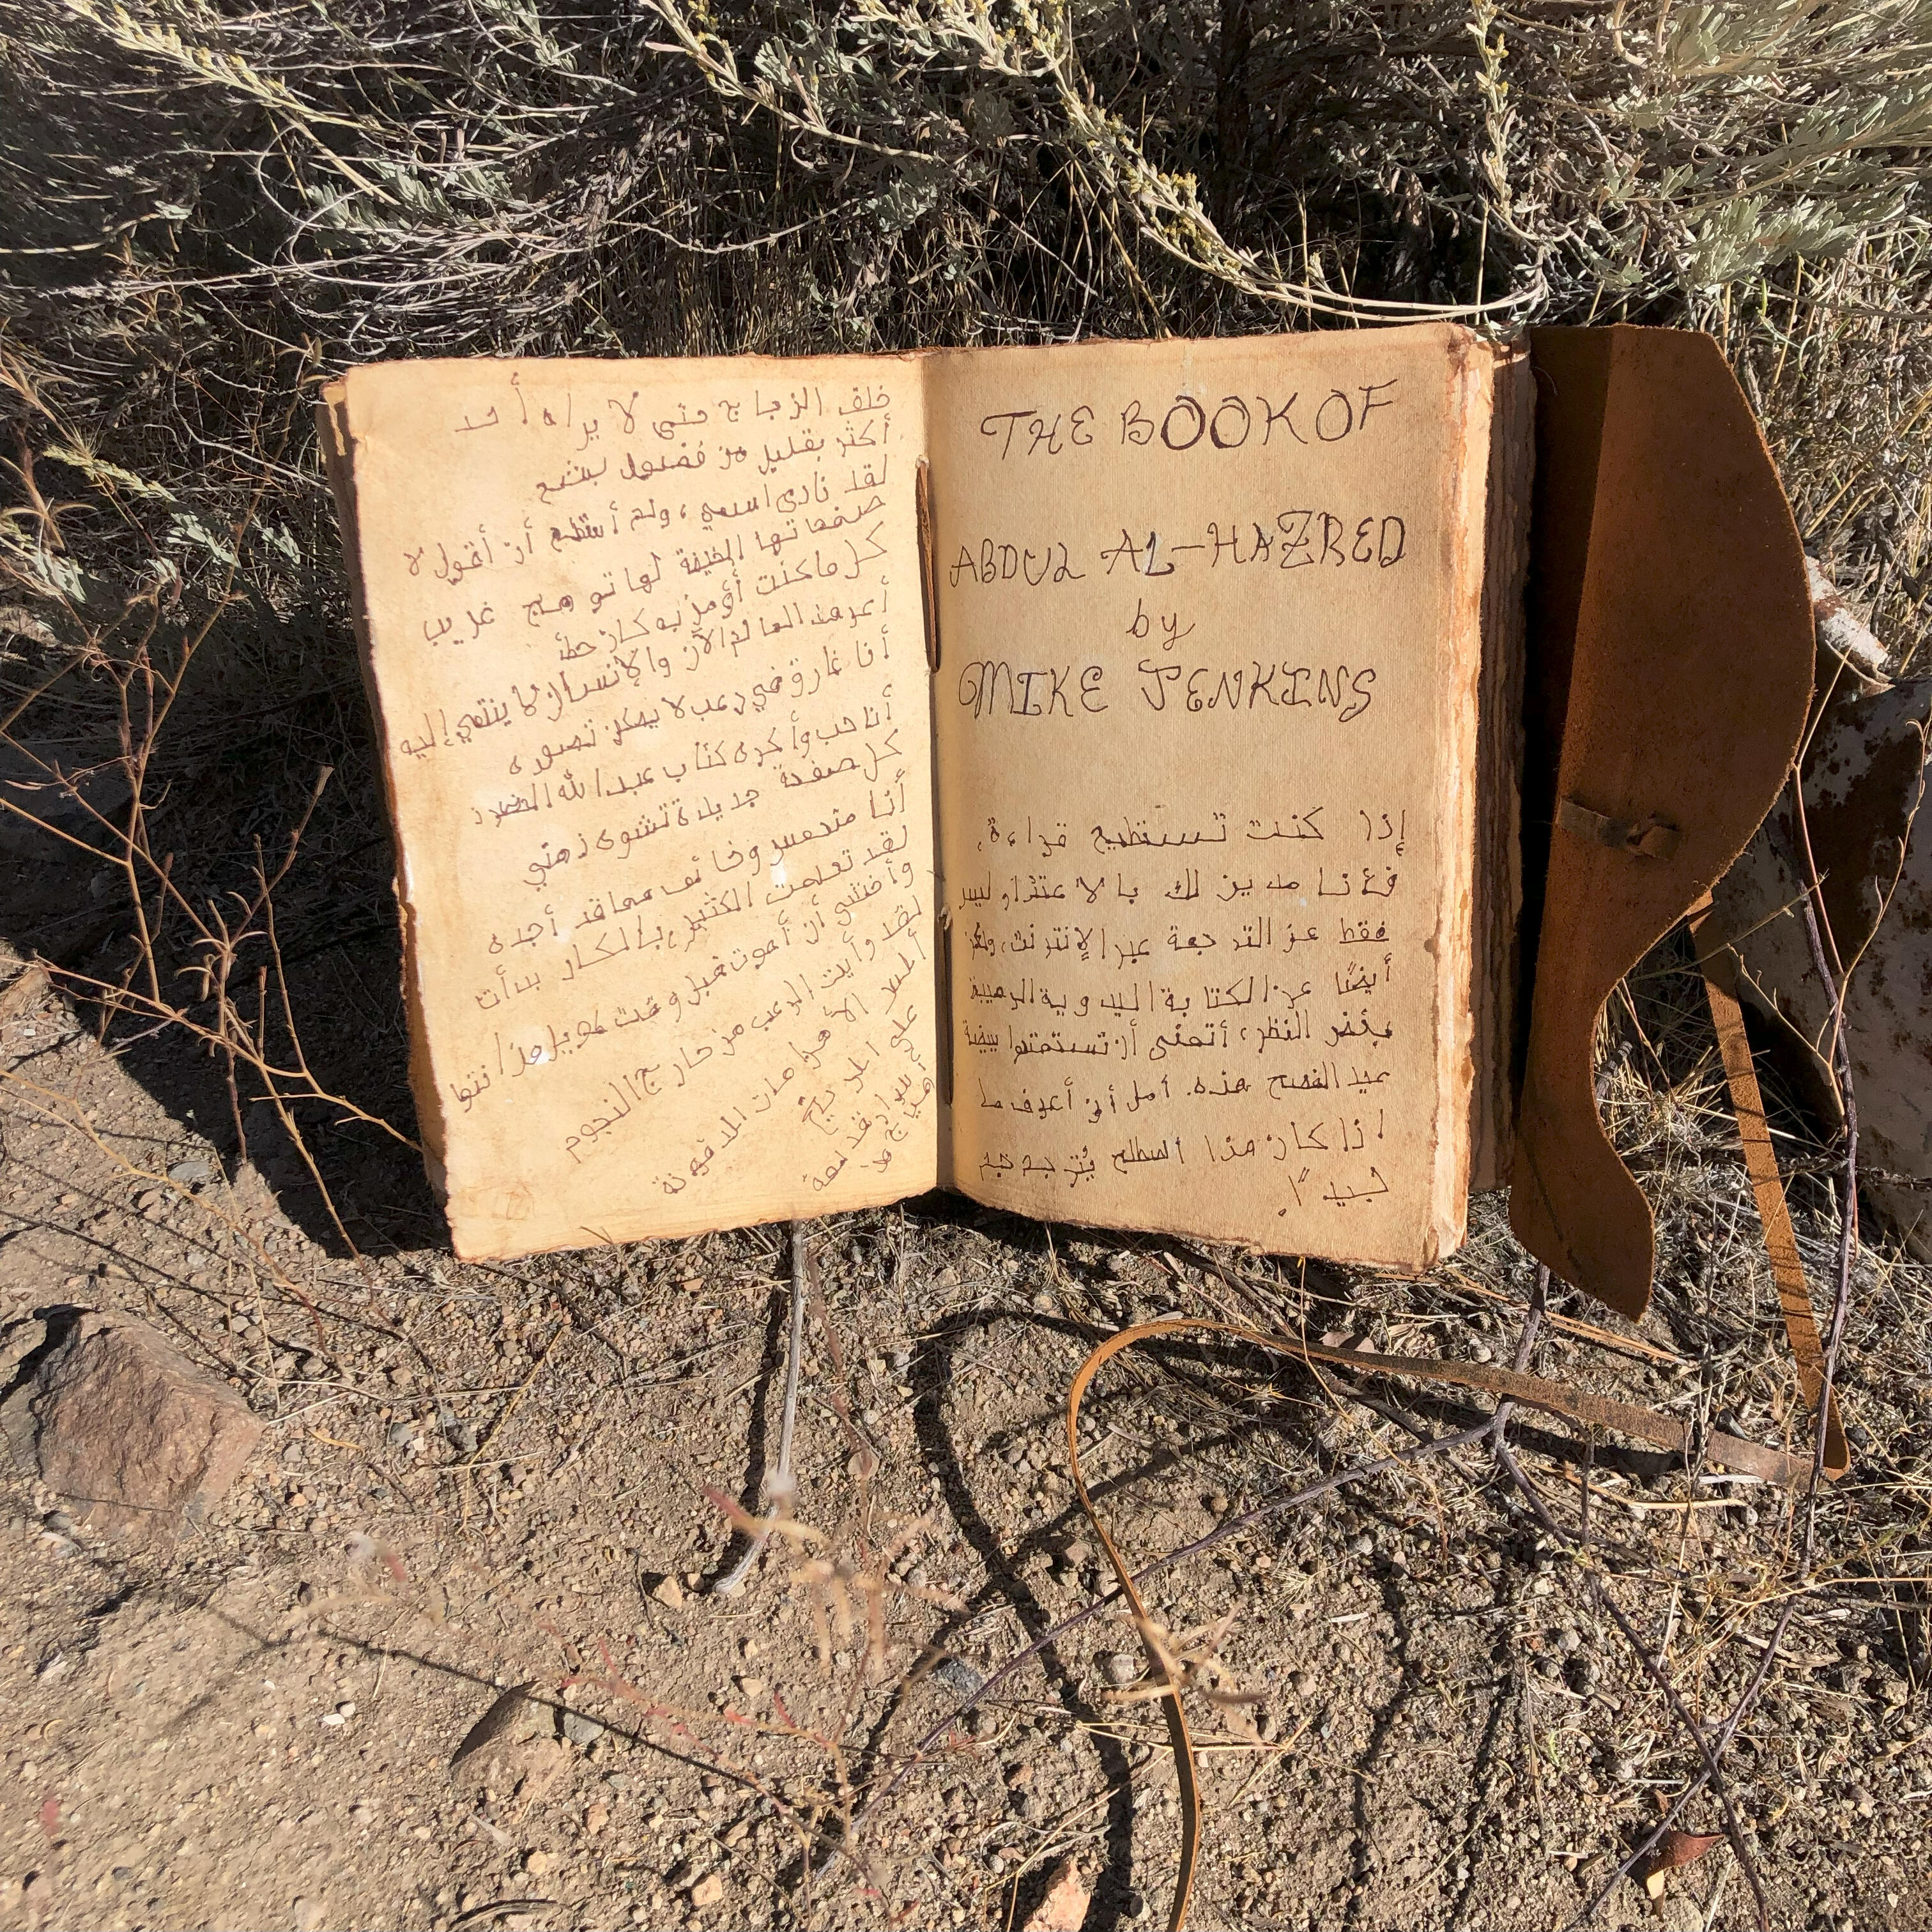 خلف الزجاج حتى لا يراه أحد
أكثر بقليل من فضول بشع
لقد نادى اسمي، ولم أستطع أن أقول لا
صفحاتها الخفيفة لها توهج غريب
كل ما كنت أؤمن به كان خطأ
أعرف العالم الآن والإنسان لا ينتمي إليه
أنا غارق في رعب لا يمكن تصوره
أنا حب وأكره كتاب عبد الله
كل صفحة جديدة تشوى ذهني
أنا متحمس وخائف مما قد أجده
لقد تعلمت الكثير، بالكاد بدأت
وأخشى أن أموت قبل وقت طويل من
لقد رأيت الرعب من خارج النجوم
ألمس الأهرامات المدفونة
على المريخ
THE BOOK OF
ABDUL AL-HAZRED
by
MIKE JENKINS
إذا كنت تستطيع قراءة،
فأنا مدين لك بالاعتذار ليس
فقط عن الترجمة عبر الإنترنت، ولكن
أيضًا عن الكتابة اليدوية الرهيبة
بغض النظر، أتمنى أن تستمتعوا ببيضة
عيد الفصح هذه. أمل أن أعرف ما
إذا كان هذا المصطلح يُترجم
جيدًا.